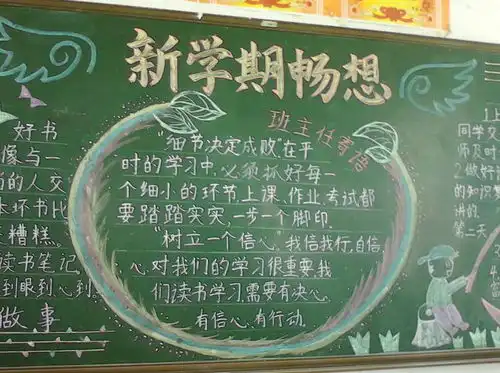 新学期畅想
班主任寄语
"细节决定成败"在平
时的学习中,必须抓好每一
个细小的环节上课、作业、考试都
要踏踏实实,一步一个脚印.
"树立一个信心,我信我行,自信
心对我们的学习很重要.我
们读书学习需要有决心
有信心,有行动.
好书
像与一
的人交
本坏书比
糟糕.
读书笔记
到眼到心到
做事
同学
师及时
2.做好
的知识
讲的.
第二天